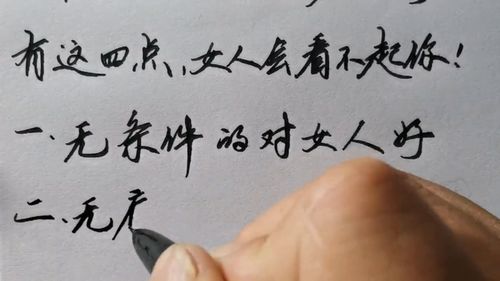 有这四点，女人会看不起你！
一、无条件的对女人好
二、无